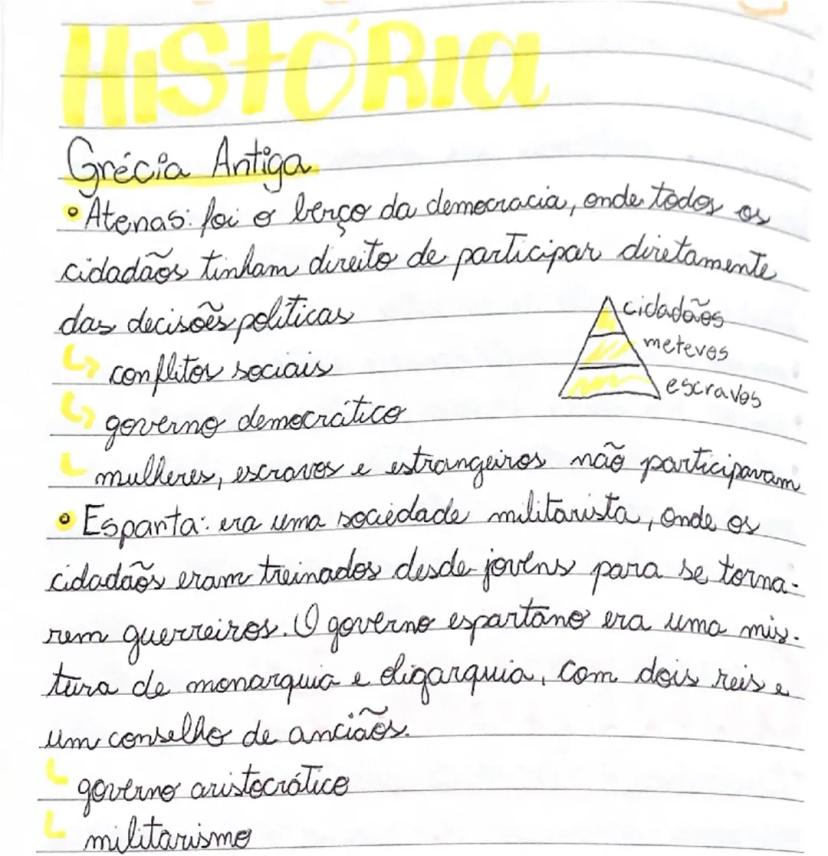 HISTÓRIA
Grécia Antiga
• Atenas: foi o berço da democracia, onde todos os
cidadãos tinham direito de participar diretamente
das decisões políticas
cidadãos
metevos
escravos
↳ conflitos sociais
↳ governo democrático
↳ mulheres, escravos e estrangeiros não participavam
• Esparta: era uma sociedade militarista, onde os
cidadãos eram treinados desde jovens para se torna-
rem guerreiros. O governo espartano era uma mis-
tura de monarquia e oligarquia, com dois reis e
um conselho de anciãos.
↳ governo aristocrático
↳ militarismo